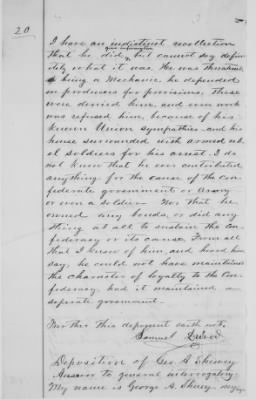 20
I have an indistinct recollection
that he did, but cannot say defin-
itely what it was. He was threatened
& being a Mechanic he depended
on producers for provisions, these
were denied him, and even work
was refused him, because of his
known Union sympathies and his
house surrounded with armed reb-
el soldiers for his arrest. I do
not know that he ever contributed
anything for the cause of the Con-
federate government or Army
or even a soldier. Nor that he
owned any bonds, or did any
thing at all to sustain the Con-
federacy or its cause. From all
that I know of him, and heard him
say, he could not have maintained
the character of loyalty to the Con-
federacy, had it maintained a
seperate government.
Further this deponent saith not.
Samuel
Deposition of Geo. A. Shuey
Answer to general interrogatory.
My name is George A. Shuey, my age